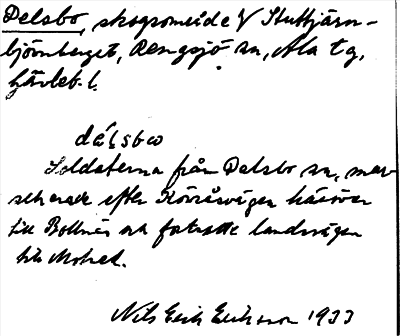 Delsbo, skogsområde V Stuttjärn-
björnberget, Rengsjö sn, Ala tg,
Gävleb. l.
délsbω
Soldaterna från Delsbo sn, mar-
scherade efter Köråsvägen häröver
till Bollnäs och fortsatte landsvägen
till Mohed.
Nils Erik Eriksson 1933